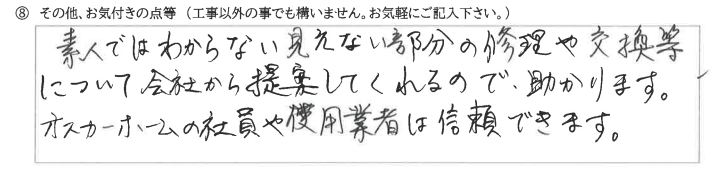 ⑧ その他、お気付きの点等（工事以外の事でも構いません。お気軽にご記入下さい。）
素人ではわからない見えない部分の修理や交換等
について会社から提案してくれるので、助かります。
オスカーホームの社員や使用業者は信頼できます。